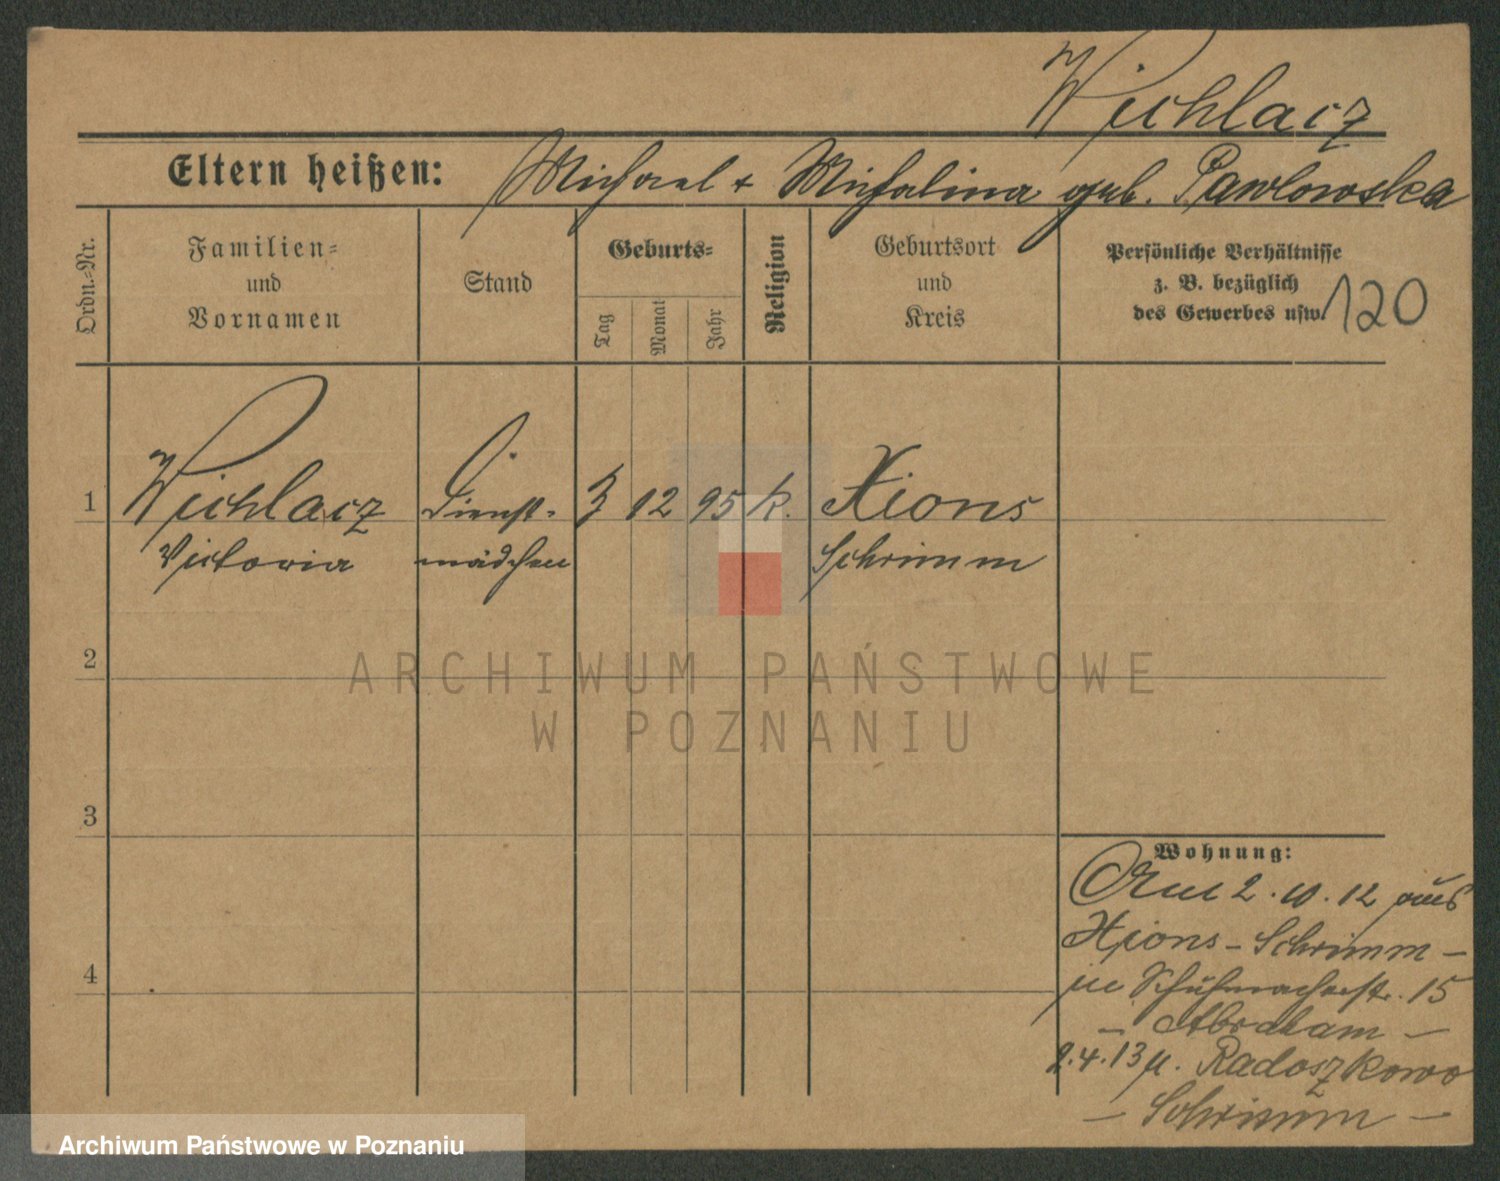 Wichlacz
Eltern heißen: Michael + Michalina geb. Pawlowska
Ordn.=Nr.
Familien= und Vornamen
Stand
Geburts=
Tag
Monat
Jahr
Religion
Geburtsort und Kreis
Persönliche Verhältnisse
z. B. bezüglich
des Gewerbes usw.
120
1 Wichlacz Dienst- 3 12 95 k. Xions
Victoria mädchen Schrimm
2
3
4
Wohnung:
Am 2.10.12 aus
Xions - Schrimm -
in Schuhmacherstr. 15
- Abraham -
2.4.13 n. Radoszkowo
- Schrimm -
ARCHIWUM PAŃSTWOWE
W POZNANIU
Archiwum Państwowe w Poznaniu